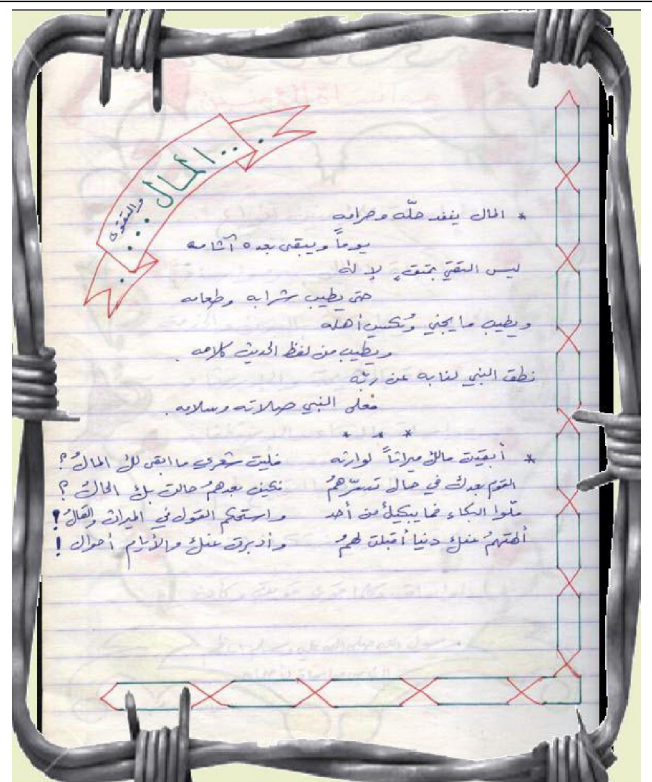 المال ...
والتقوى
* المال ينفد حلّه وحرامه
يوماً ويبقى بعده آثامه
ليس التقيّ بمتقٍ لإلهه
حتى يطيب شرابه وطعامه
ويطيب ما يجني ويكسب أهله
ويطيب من لفظ الحديث كلامه
نطق النبي لنا به عن ربّه
فعلى النبي صلاته وسلامه
* * *
* أبقيت مالك ميراثاً لوارثه فليت شعري ما أبقى لك المالُ؟
القوم بعدك في حال تسرّهمُ فكيف بعدهمُ حالت بك الحالُ؟
ملّوا البكاء فما يبكيك من أحد واستحكم القول في الميراث والقالُ!
ألهتهمُ عنك دنيا أقبلت لهمُ وأدبرت عنك والأيام أحوال!